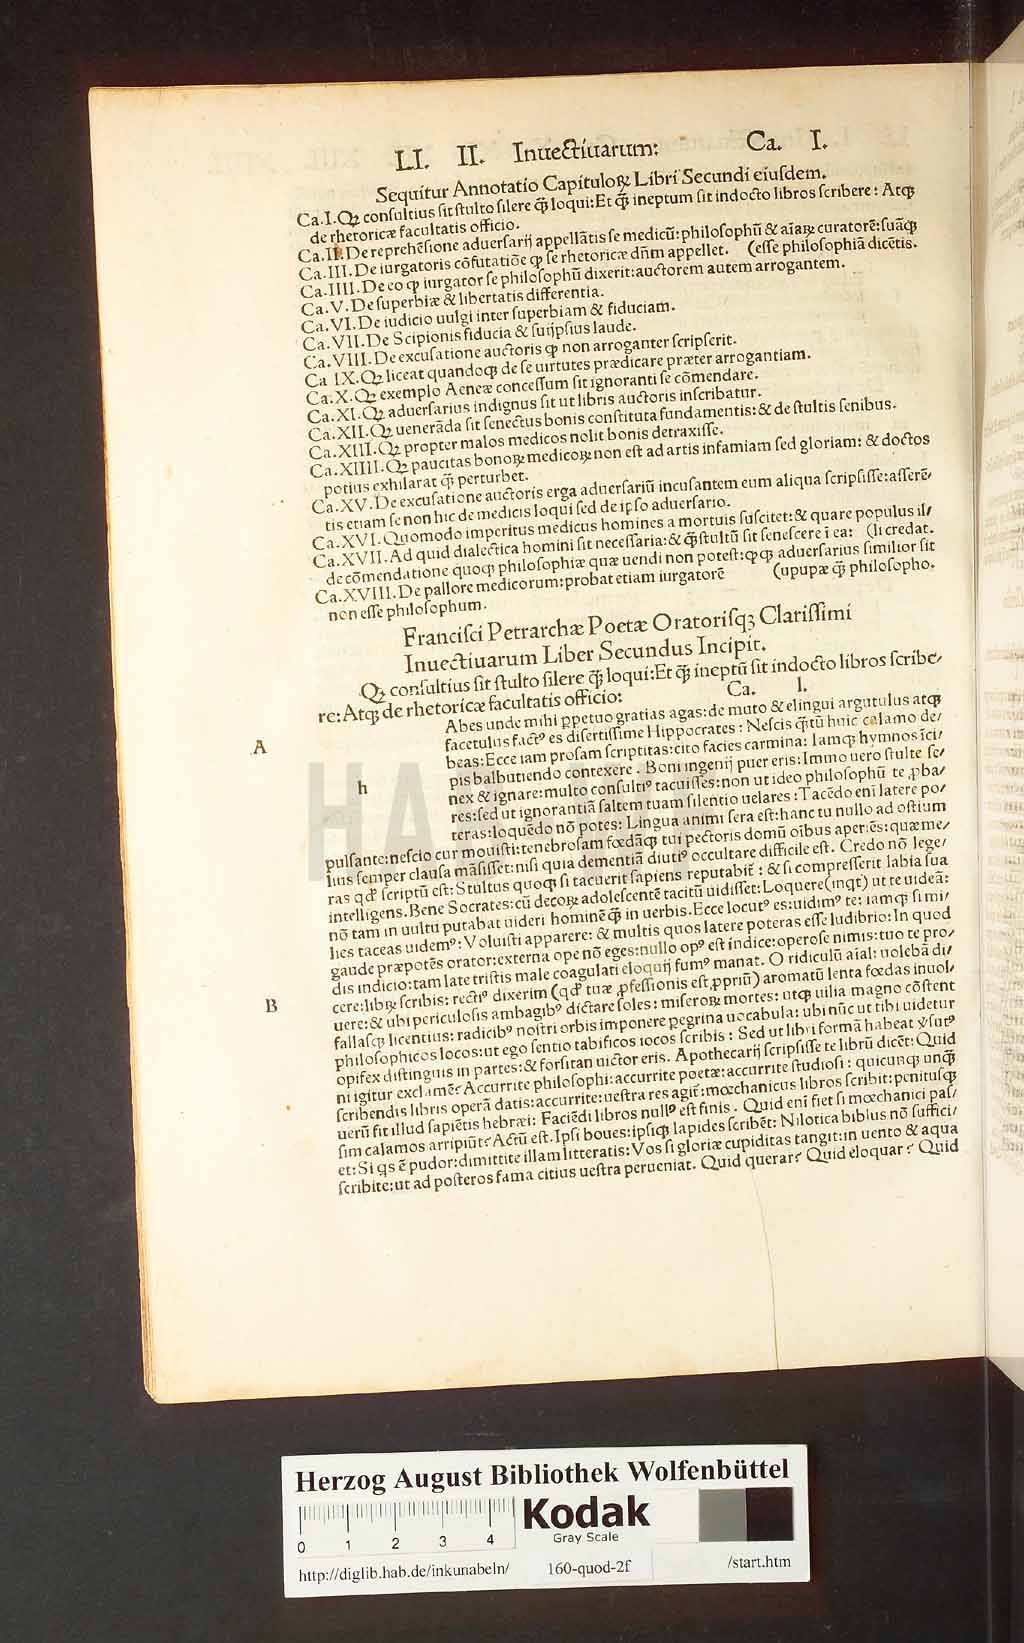 LI. II. Inuectiuarum: Ca. I.
Sequitur Annotatio Capituloꝝ Libri Secundi eiusdem.
Ca.I.Qꝫ consultius sit stulto silere q̃ꝫ loqui:Et q̃ꝫ ineptum sit indocto libros scribere: Atqꝫ
de rhetoricæ facultatis officio.
Ca.II.De reprehẽsione aduersarij appellãtis se medicũ:philosophũ & aĩaꝝ curatorẽ:suãqꝫ
Ca.III.De iurgatoris cõfutatiõe qꝫ se rhetoricæ dñm appellet. (esse philosophiã dicẽtis.
Ca.IIII.De eo qꝫ iurgator se philosophũ dixerit:auctorem autem arrogantem.
Ca.V.De superbiæ & libertatis differentia.
Ca.VI.De iudicio uulgi inter superbiam & fiduciam.
Ca.VII.De Scipionis fiducia & suijpsius laude.
Ca.VIII.De excusatione auctoris qꝫ non arroganter scripserit.
Ca IX.Qꝫ liceat quandoqꝫ de se uirtutes prædicare præter arrogantiam.
Ca.X.Qꝫ exemplo Aeneæ concessum sit ignoranti se cõmendare.
Ca.XI.Qꝫ aduersarius indignus sit ut libris auctoris inscribatur.
Ca.XII.Qꝫ uenerãda sit senectus bonis constituta fundamentis:& de stultis senibus.
Ca.XIII.Qꝫ propter malos medicos nolit bonis detraxisse.
Ca.XIIII.Qꝫ paucitas bonoꝝ medicoꝝ non est ad artis infamiam sed gloriam: & doctos
potius exhilarat q̃ꝫ perturbet.
Ca.XV.De excusatione auctoris erga aduersariũ incusantem eum aliqua scripsisse:asserẽ/
tis etiam se non hic de medicis loqui sed de ipso aduersario.
Ca.XVI.Quomodo imperitus medicus homines a mortuis suscitet:& quare populus il/
Ca.XVII.Ad quid dialectica homini sit necessaria:& q̃ꝫ stultũ sit senescere ĩ ea: (li credat.
de cõmendatione quoqꝫ philosophiæ quæ uendi non potest:qꝫqꝫ aduersarius similior sit
Ca.XVIII.De pallore medicorum:probat etiam iurgatorẽ (upupæ q̃ꝫ philosopho.
non esse philosophum.
Francisci Petrarchæ Poetæ Oratorisqꝫ Clarissimi
Inuectiuarum Liber Secundus Incipit.
Qꝫ consultius sit stulto silere q̃ꝫ loqui:Et q̃ꝫ ineptũ sit indocto libros scribe/
re:Atqꝫ de rhetoricæ facultatis officio: Ca. I.
A
h
Abes unde mihi ꝑpetuo gratias agas:de muto & elingui argutulus atqꝫ
facetulus factꝰ es disertissime Hippocrates: Nescis q̃tũ huic calamo de/
beas:Ecce iam prosam scriptitas:cito facies carmina: Iamqꝫ hymnos ĩci/
pis balbutiendo contexere. Boni ingenij puer eris:Immo uero stulte se/
nex & ignare:multo consultiꝰ tacuisses:non ut ideo philosophũ te ꝓba/
res:sed ut ignorantiã saltem tuam silentio uelares:Tacẽdo eni latere po/
teras:loquẽdo nõ potes: Lingua animi sera est:hanc tu nullo ad ostium
pulsante:nescio cur mouisti:tenebrosam fœdãqꝫ tui pectoris domũ oĩbus aperiẽs:quæ me/
lius semper clausa mãsisset:nisi quia dementiã diutiꝰ occultare difficile est. Credo nõ lege/
ras qđ scriptũ est:Stultus quoqꝫ si tacuerit sapiens reputabit̃: & si compresserit labia sua
intelligens.Bene Socrates:cũ decoꝝ adolescentẽ tacitũ uidisset:Loquere(inqt̃) ut te uideã:
nõ tam in uultu putabat uideri hominẽqꝫ in uerbis.Ecce locutꝰ es:uidimꝰ te: iamqꝫ si mi/
lies taceas uidemꝰ:Voluisti apparere:& multis quos latere poteras esse ludibrio:In quod
gaude præpotẽs orator:externa ope nõ eges:nullo opꝰ est indice:operose nimis:tuo te pro/
dis indicio:tam late tristis male coagulati eloquij fumꝰ manat. O ridiculũ aĩal: uolebã di/
B
cere:libꝝ scribis: rectiꝰ dixerim (qđ tuæ ꝓfessionis est ꝓpriũ) aromatũ lenta fœdas inuol/
uere:& ubi periculosis ambagibꝰ dictare soles: miseroꝝ mortes: utqꝫ uilia magno cõstent
fallasqꝫ licentius:radicibꝰ nostri orbis imponere pegrina uocabula: ubi nũc ut tibi uidetur
philosophicos locos:ut ego sentio tabificos iocos scribis: Sed ut libri formã habeat ꝟsutꝰ
opifex distinguis in partes:& forsitan uictor eris. Apothecarij scripsisse te librũ dicẽt: Quid
ni igitur exclamẽ? Accurrite philosophi:accurrite poetæ:accurrite studiosi: quicunqꝫ unq̃ꝫ
scribendis libris operã datis:accurrite:uestra res agit̃:mœchanicus libros scribit:penitusqꝫ
uerũ fit illud sapiẽtis hebræi: Faciẽdi libros nullꝰ est finis. Quid eni fiet si mœchanici pas/
sim calamos arripiũt? Actũ est.Ipsi boues:ipsiqꝫ lapides scribẽt: Nilotica biblus nõ suffici/
et:Si qs ẽ pudor:dimittite illam litteratis:Vos si gloriæ cupiditas tangit:in uento & aqua
scribite:ut ad posteros fama citius uestra perueniat. Quid querar? Quid eloquar? Quid
Herzog August Bibliothek Wolfenbüttel
0 1 2 3 4
Kodak
Gray Scale
http://diglib.hab.de/inkunabeln/ 160-quod-2f /start.htm